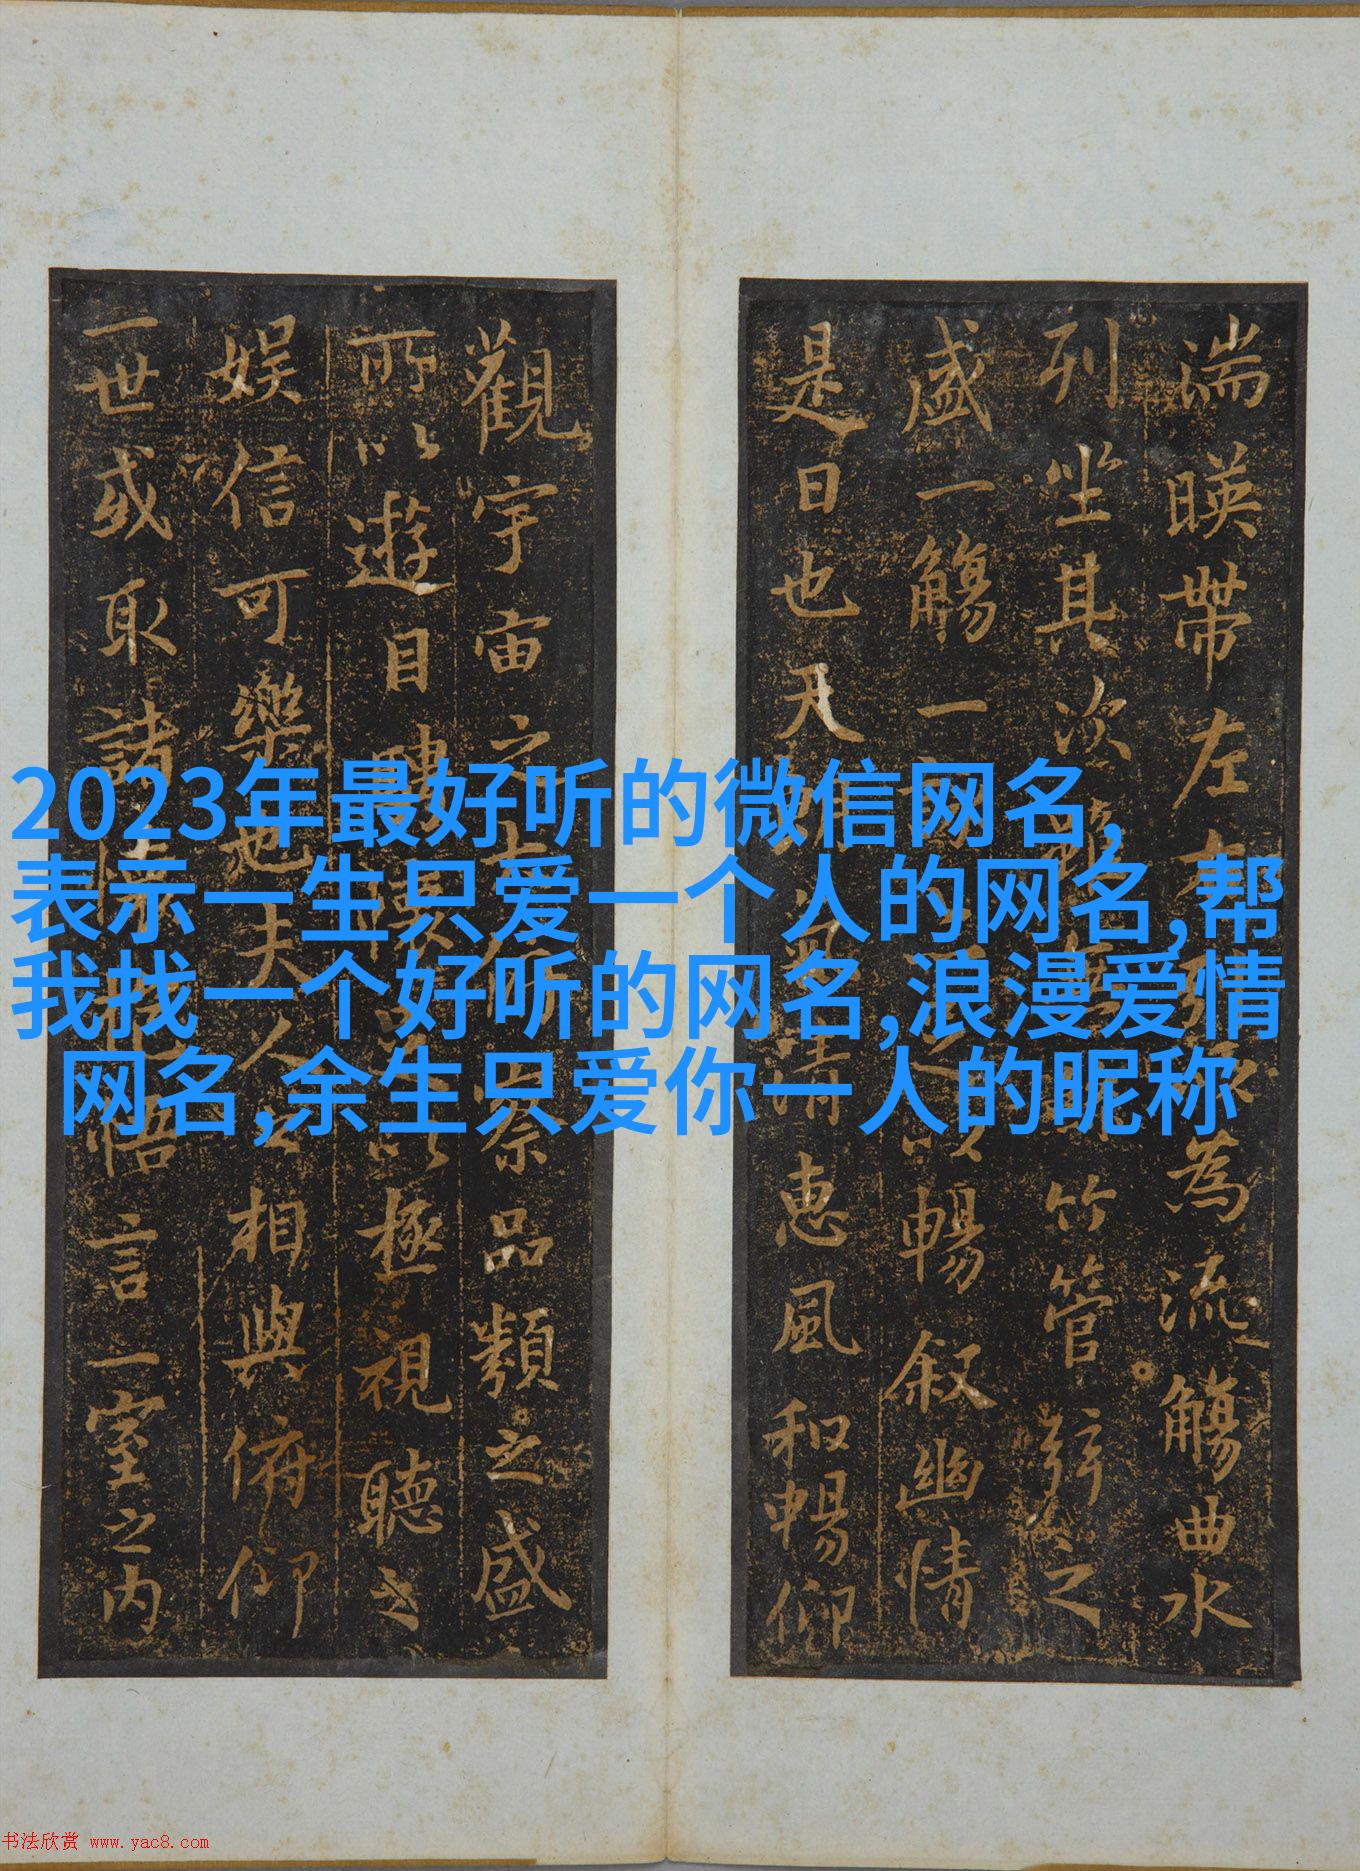 湍暎帶左右
為流觴曲水
列坐其次
竹管弦之
盛一觴一
暢叙幽情
是日也天朗氣清惠風和暢仰
觀宇宙之
品類之盛
所以遊目騁懷
極視聽之
娱信可樂也夫人之相與俯仰
一世或取諸懷抱悟言一室之内
2023年最好听的微信网名,
表示一生只爱一个人的网名,帮
我找一个好听的网名,浪漫爱情
网名,余生只爱你一人的昵称
书法欣赏 www.yac8.com